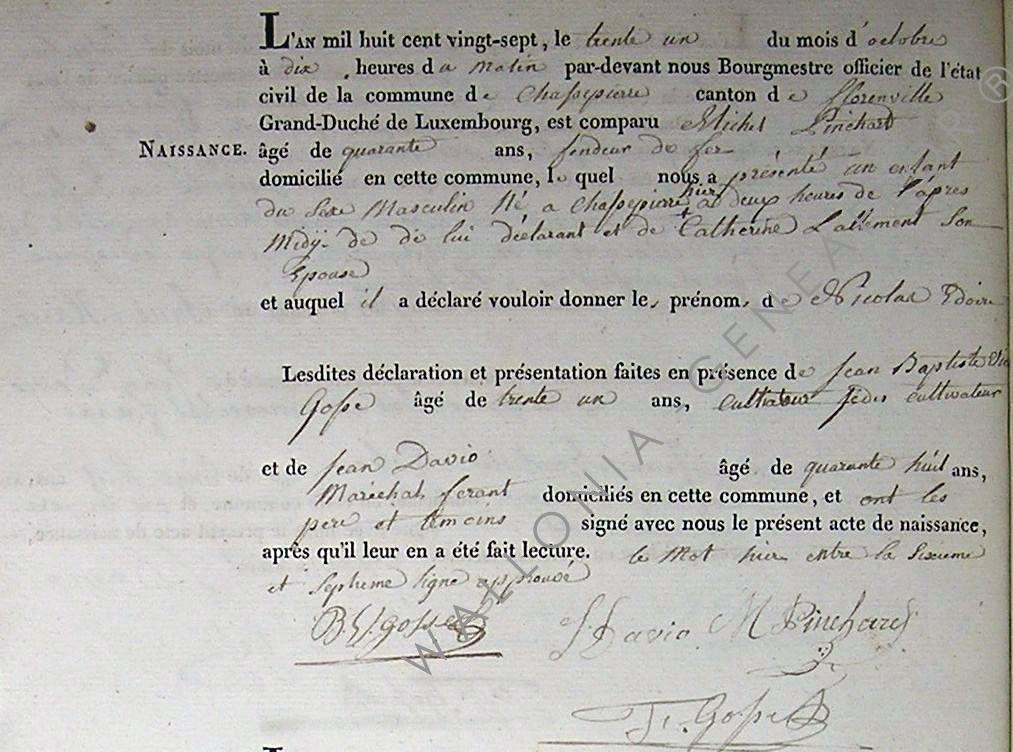 L'AN mil huit cent vingt-sept, le trente un du mois d'octobre
à dix heures du Matin par-devant nous Bourgmestre officier de l'état
civil de la commune de Chassepierre canton de florenville
Grand-Duché de Luxembourg, est comparu Michel Pinchart
NAISSANCE. âgé de quarante ans, fondeur de fer
domicilié en cette commune, lequel nous a présenté un enfant
du Sexe Masculin Né a Chassepierre hier a deux heures de l'apres
Midy de lui déclarant et de Catherine Lallement Son
Epouse
et auquel il a déclaré vouloir donner les prénoms de Nicolas
Lesdites déclaration et présentation faites en présence de Jean Baptiste
Gosse âgé de trente un ans, cultivateur
et de Jean Davio âgé de quarante huit ans,
Maréchal ferant domiciliés en cette commune, et ont les
pere et temoins signé avec nous le présent acte de naissance,
après qu'il leur en a été fait lecture. le Mot hier entre la Sixieme
et Septieme ligne approuvé
Gosse
J. Davio M Pinchard
Gosse
WALLONIA GENEA
®